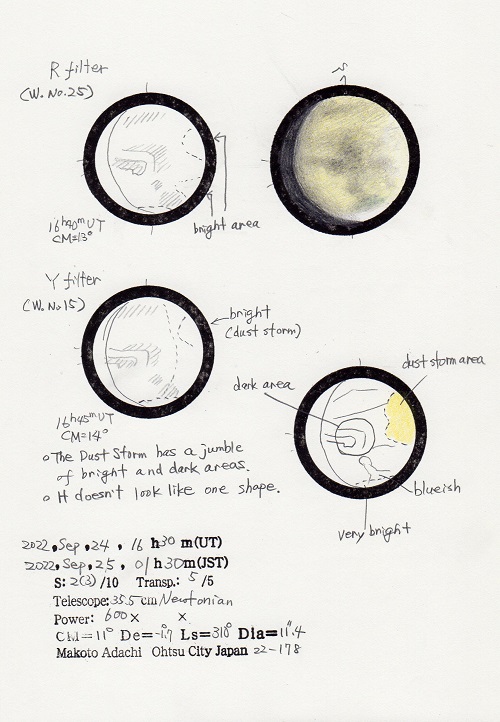 R filter
(W. No.25)
S
16h40m UT
CM=13°
bright area
Y filter
(W. No.15)
bright
(dust storm)
dust storm area
dark area
16h45m UT
CM=14°
o The Dust Storm has a jumble
of bright and dark areas.
o It doesn't look like one shape.
blueish
very bright
2022, Sep, 24, 16 h 30 m(UT)
2022, Sep, 25, 01 h 30 m(JST)
S: 2(3) /10 Transp.: 5 /5
Telescope: 35.5 cm Newtonian
Power: 600 x x
CM=11° De=-1.7 Ls=310° Dia=11".4
Makoto Adachi Ohtsu City Japan 22-178